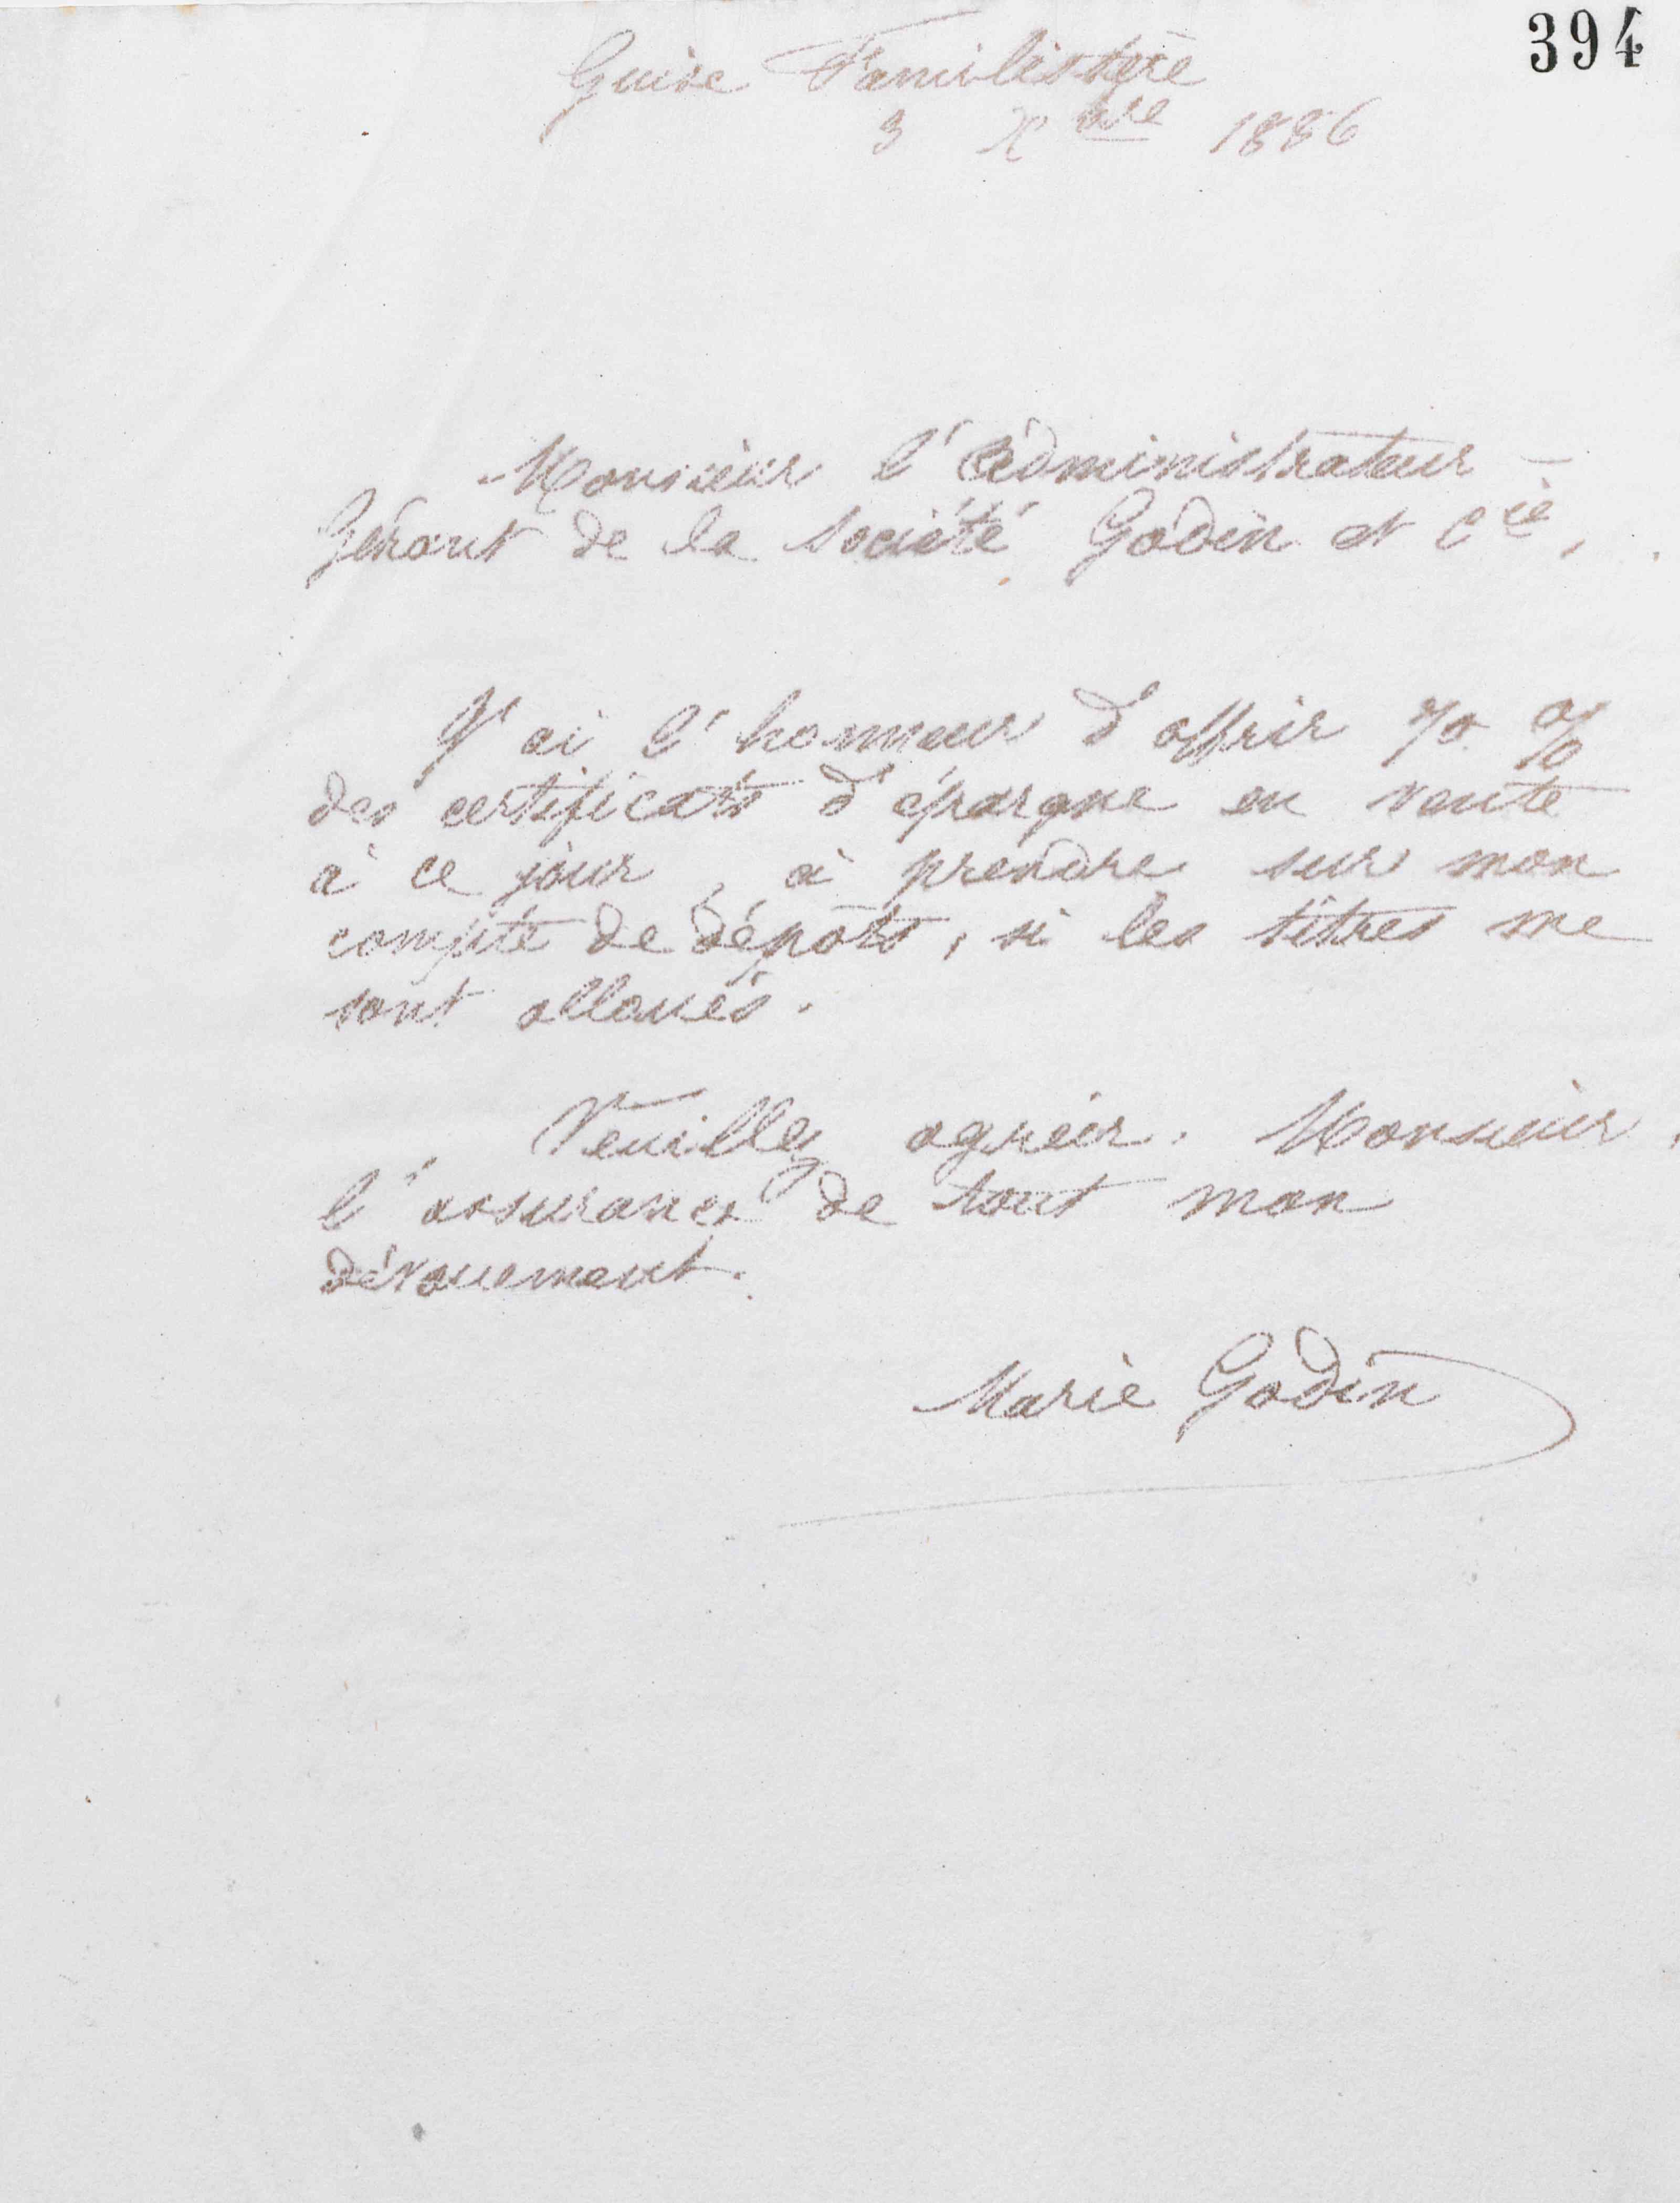 394
Guise Familistère
3 Xbre 1886
Monsieur l'Administrateur-
Gérant de la Société Godin et Cie,
J'ai l'honneur d'offrir 70 %
des certificats d'épargne en vente
à ce jour, à prendre sur mon
compte de dépôts, si les titres me
sont alloués.
Veuillez agréer, Monsieur,
l'assurance de tout mon
dévouement.
Marie Godin